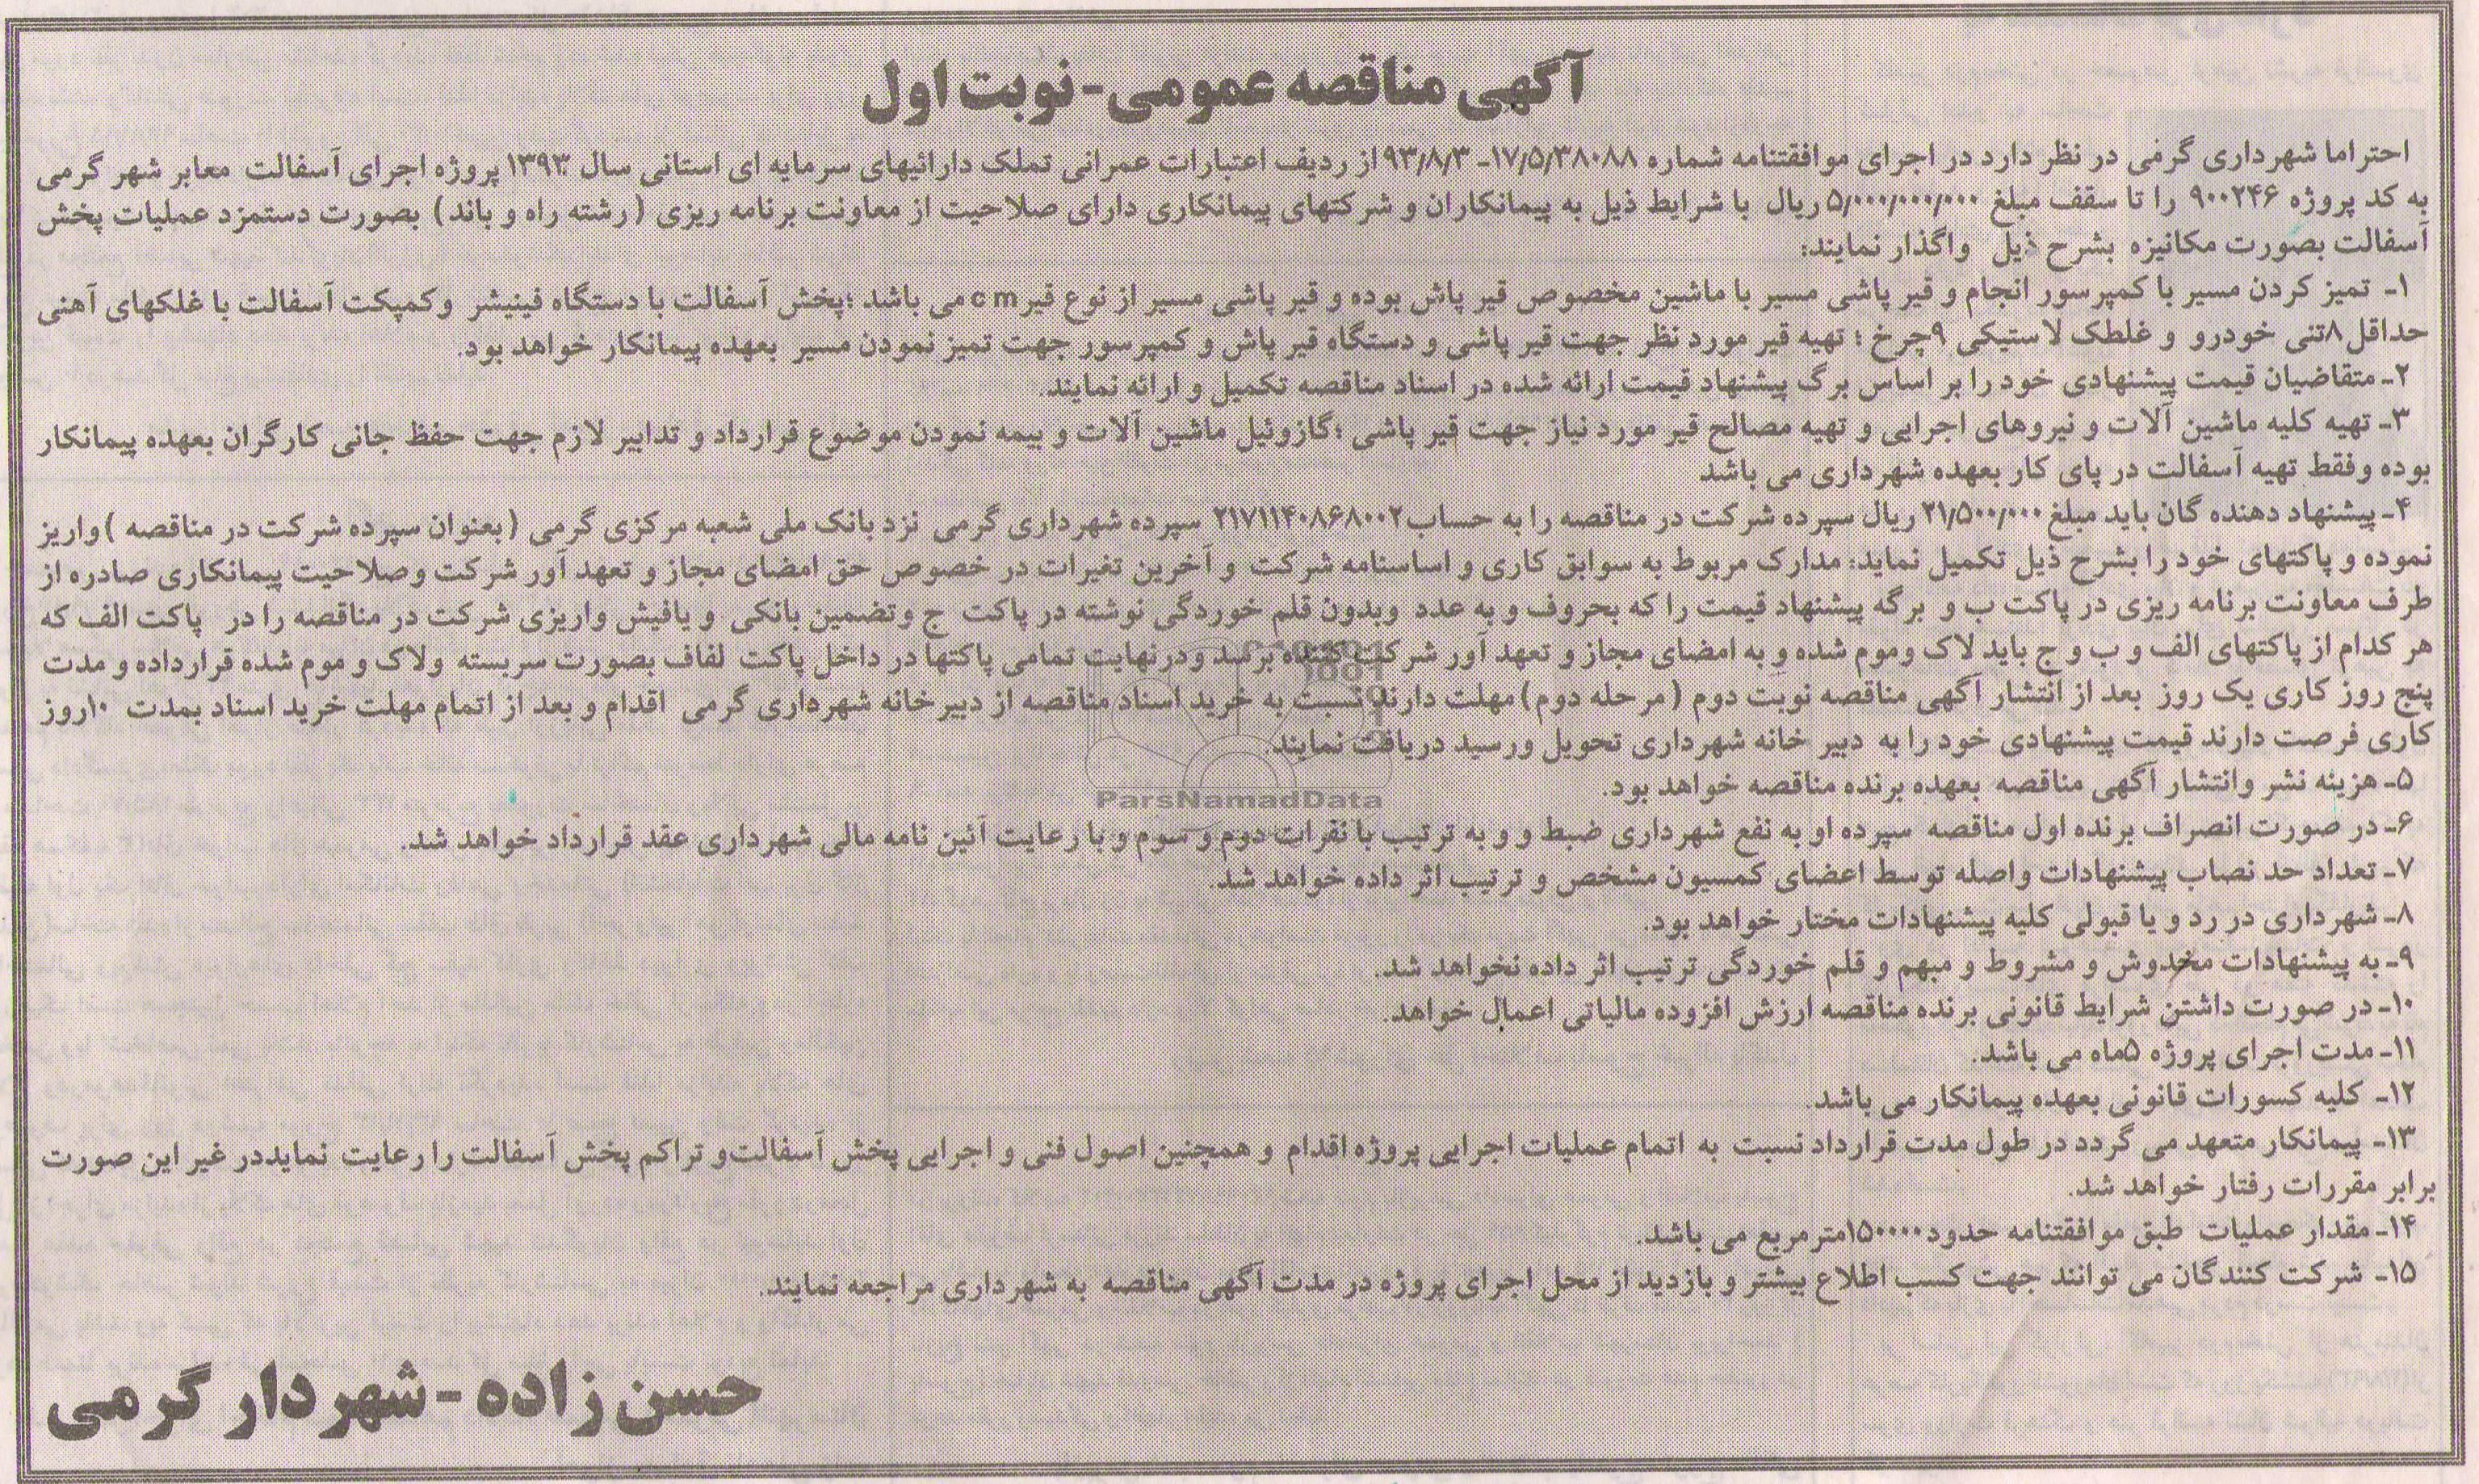 آگهی مناقصه عمومی - نوبت اول
احتراما شهرداری گرمی در نظر دارد در اجرای موافقتنامه شماره ۱۷/۵/۳۸۰۸۸- ۹۳/۸/۳ از ردیف اعتبارات عمرانی تملک دارائیهای سرمایه ای استانی سال ۱۳۹۳ پروژه اجرای آسفالت معابر شهر گرمی
به کد پروژه ۹۰۰۲۴۶ را تا سقف مبلغ ۵/۰۰۰/۰۰۰/۰۰۰ ریال با شرایط ذیل به پیمانکاران و شرکتهای پیمانکاری دارای صلاحیت از معاونت برنامه ریزی (رشته راه و باند) بصورت دستمزد عملیات پخش
آسفالت بصورت مکانیزه بشرح ذیل واگذار نمایند:
۱- تمیز کردن مسیر با کمپرسور انجام و قیر پاشی مسیر با ماشین مخصوص قیر پاش بوده و قیر پاشی مسیر از نوع قیر cm می باشد ؛پخش آسفالت با دستگاه فینیشر وکمپکت آسفالت با غلکهای آهنی
حداقل ۸تنی خودرو و غلطک لاستیکی ۹چرخ ؛ تهیه قیر مورد نظر جهت قیر پاشی و دستگاه قیر پاش و کمپرسور جهت تمیز نمودن مسیر بعهده پیمانکار خواهد بود.
۲- متقاضیان قیمت پیشنهادی خود را بر اساس برگ پیشنهاد قیمت ارائه شده در اسناد مناقصه تکمیل و ارائه نمایند.
۳- تهیه کلیه ماشین آلات و نیروهای اجرایی و تهیه مصالح قیر مورد نیاز جهت قیر پاشی ؛گازوئیل ماشین آلات و بیمه نمودن موضوع قرارداد و تدابیر لازم جهت حفظ جانی کارگران بعهده پیمانکار
بوده وفقط تهیه آسفالت در پای کار بعهده شهرداری می باشد
۴- پیشنهاد دهنده گان باید مبلغ ۲۱/۵۰۰/۰۰۰ ریال سپرده شرکت در مناقصه را به حساب ۲۱۷۱۱۴۰۸۶۸۰۰۲ سپرده شهرداری گرمی نزد بانک ملی شعبه مرکزی گرمی (بعنوان سپرده شرکت در مناقصه ) واریز
نموده و پاکتهای خود را بشرح ذیل تکمیل نماید: مدارک مربوط به سوابق کاری و اساسنامه شرکت و آخرین تغیرات در خصوص حق امضای مجاز و تعهد آور شرکت وصلاحیت پیمانکاری صادره از
طرف معاونت برنامه ریزی در پاکت ب و برگه پیشنهاد قیمت را که بحروف و به عدد وبدون قلم خوردگی نوشته در پاکت ج وتضمین بانکی و یافیش واریزی شرکت در مناقصه را در پاکت الف که
هر کدام از پاکتهای الف و ب و ج باید لاک وموم شده و به امضای مجاز و تعهد آور شرکت کننده برسد ودرنهایت تمامی پاکتها در داخل پاکت لفاف بصورت سربسته ولاک و موم شده قرارداده و مدت
پنج روز کاری یک روز بعد از انتشار آگهی مناقصه نوبت دوم (مرحله دوم) مهلت دارند نسبت به خرید اسناد مناقصه از دبیرخانه شهرداری گرمی اقدام و بعد از اتمام مهلت خرید اسناد بمدت ۱۰روز
کاری فرصت دارند قیمت پیشنهادی خود را به دبیر خانه شهرداری تحویل ورسید دریافت نمایند.
۵- هزینه نشر وانتشار آگهی مناقصه بعهده برنده مناقصه خواهد بود.
ParsNamadData
۶- در صورت انصراف برنده اول مناقصه سپرده او به نفع شهرداری ضبط و و به ترتیب با نفرات دوم و سوم و با رعایت آئین نامه مالی شهرداری عقد قرارداد خواهد شد.
۷- تعداد حد نصاب پیشنهادات واصله توسط اعضای کمسیون مشخص و ترتیب اثر داده خواهد شد.
۸- شهرداری در رد و یا قبولی کلیه پیشنهادات مختار خواهد بود.
۹- به پیشنهادات مخدوش و مشروط و مبهم و قلم خوردگی ترتیب اثر داده نخواهد شد.
۱۰- در صورت داشتن شرایط قانونی برنده مناقصه ارزش افزوده مالیاتی اعمال خواهد.
۱۱- مدت اجرای پروژه ۵ماه می باشد.
۱۲- کلیه کسورات قانونی بعهده پیمانکار می باشد.
۱۳- پیمانکار متعهد می گردد در طول مدت قرارداد نسبت به اتمام عملیات اجرایی پروژه اقدام و همچنین اصول فنی و اجرایی پخش آسفالت و تراکم پخش آسفالت را رعایت نمایددر غیر این صورت
برابر مقررات رفتار خواهد شد.
۱۴- مقدار عملیات طبق موافقتنامه حدود۱۵۰۰۰۰مترمربع می باشد.
۱۵- شرکت کنندگان می توانند جهت کسب اطلاع بیشتر و بازدید از محل اجرای پروژه در مدت آگهی مناقصه به شهرداری مراجعه نمایند.
حسن زاده - شهردار گرمی